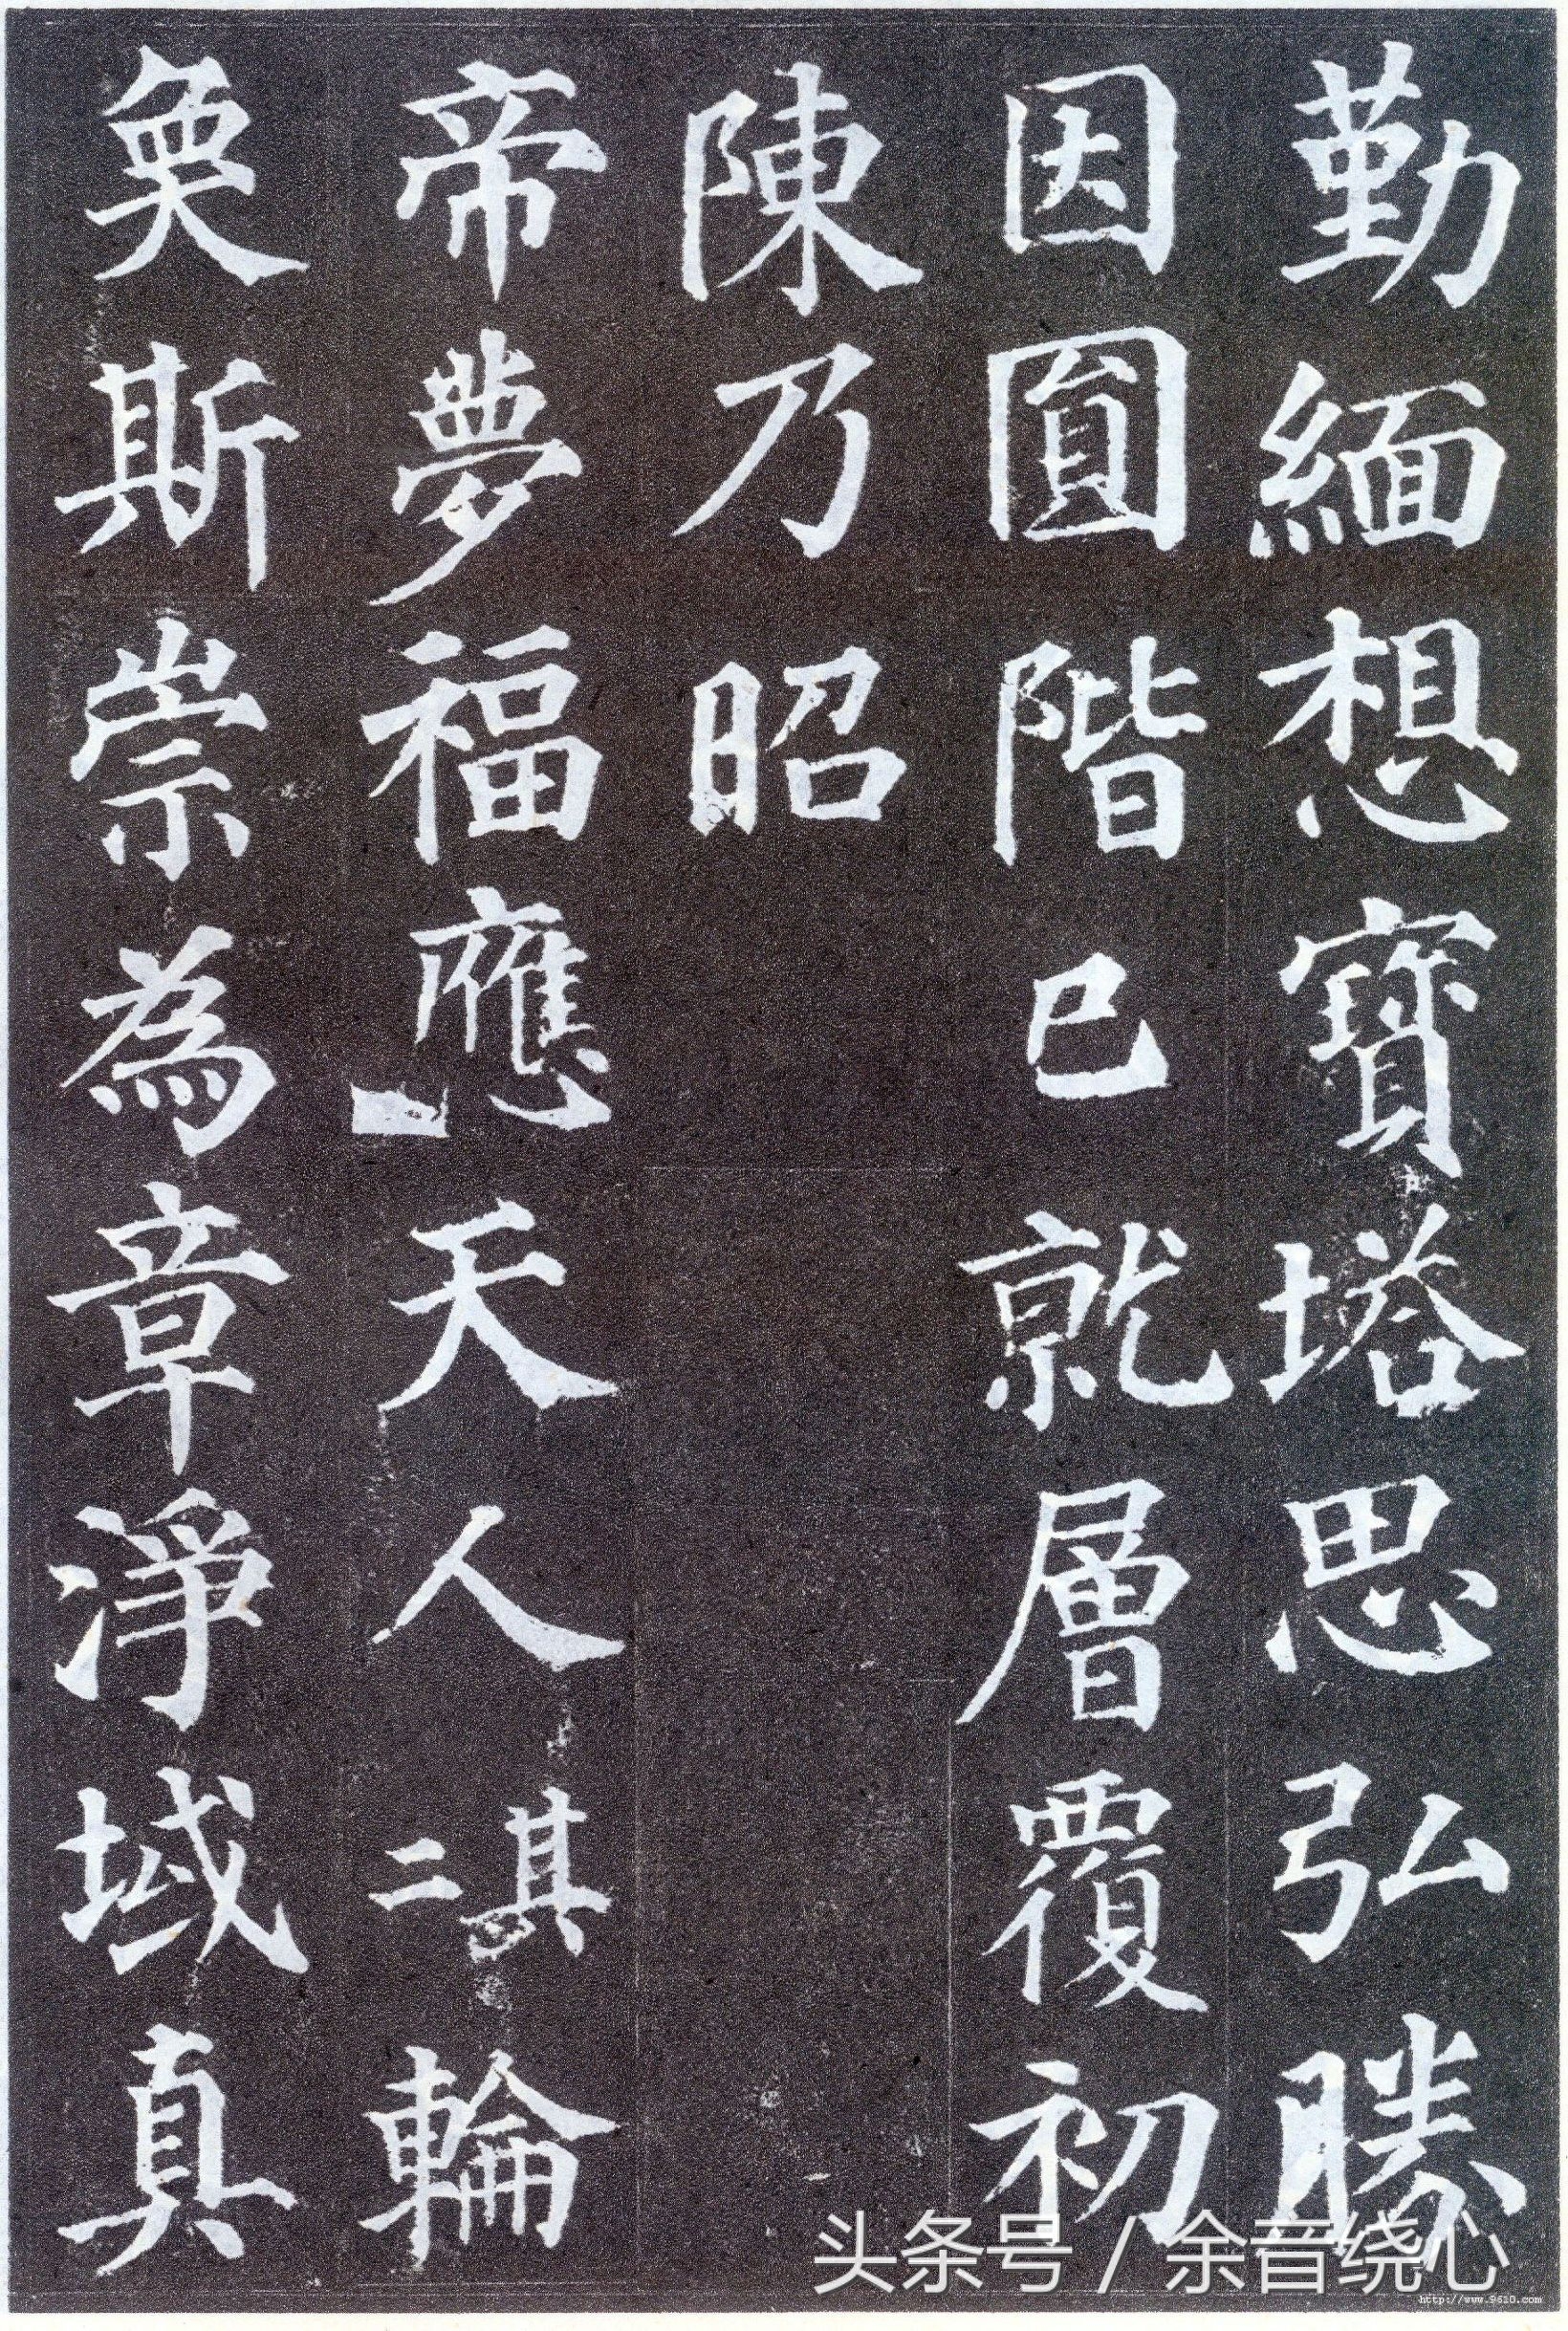 勤緬想寶塔思弘勝
因圓階已就層覆初
陳乃昭
帝夢福應天人其二輪
奐斯崇為章淨域真
头条号 / 余音绕心
http://www.9610.com